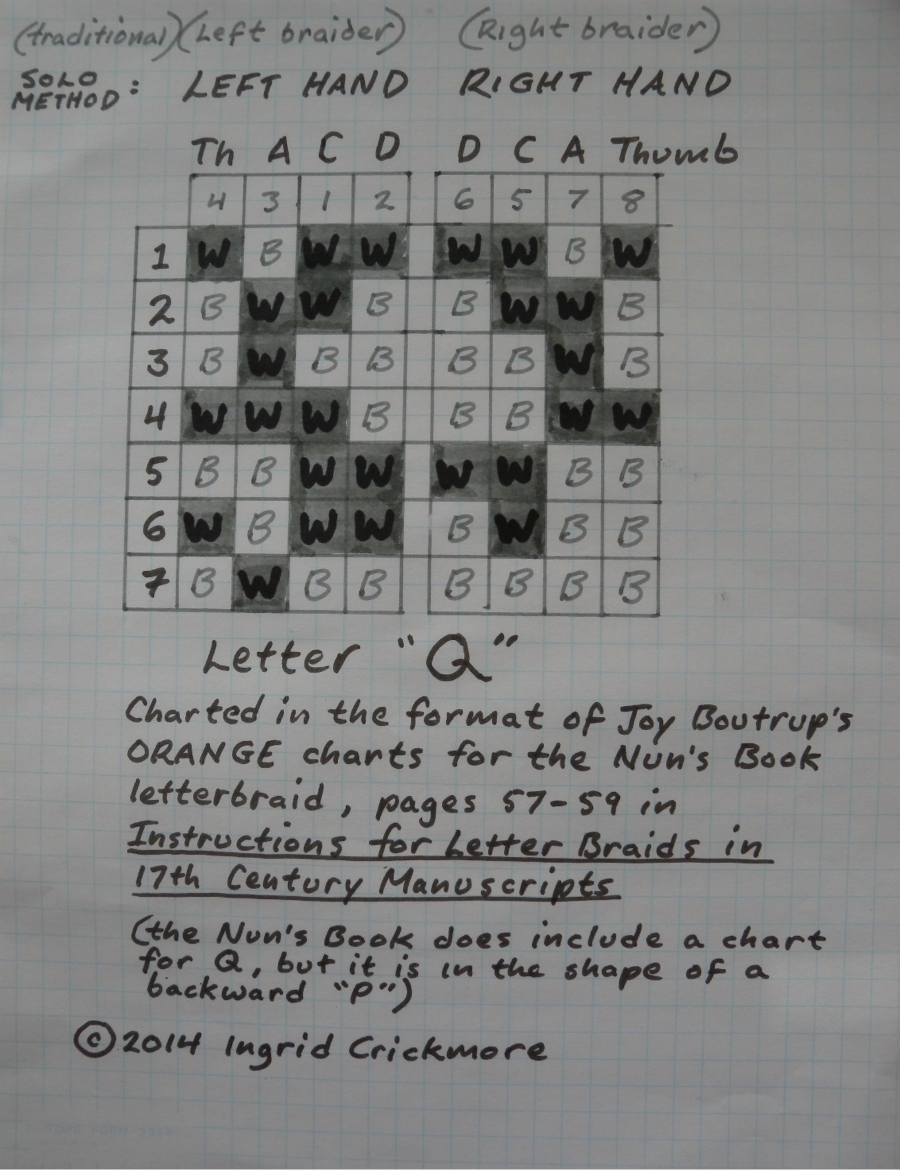 (traditional)(Left braider) (Right braider)
SOLO METHOD: LEFT HAND RIGHT HAND
Th A C D D C A Thumb
4 3 1 2 6 5 7 8
1 W B W W W W B W
2 B W W B B W W B
3 B W B B B B W B
4 W W W B B B W W
5 B B W W W W B B
6 W B W W B W B B
7 B W B B B B B B
Letter "Q"
Charted in the format of Joy Boutrup's
ORANGE charts for the Nun's Book
letterbraid, pages 57-59 in
Instructions for Letter Braids in
17th Century Manuscripts
(the Nun's Book does include a chart
for Q, but it is in the shape of a
backward "P")
©2014 Ingrid Crickmore